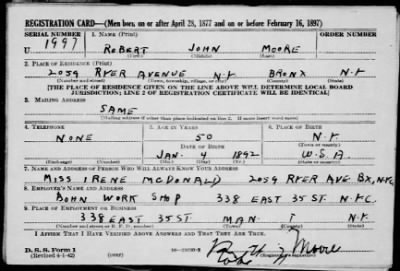 REGISTRATION CARD—(Men born on or after April 28, 1877 and on or before February 16, 1897)
SERIAL NUMBER 1. NAME (Print) ORDER NUMBER
U 1997 ROBERT JOHN MOORE
(First) (Middle) (Last)
2. PLACE OF RESIDENCE (Print)
2059 RYER AVENUE N.Y. BRONX N.Y.
(Number and street) (Town, township, village, or city) (County) (State)
[THE PLACE OF RESIDENCE GIVEN ON THE LINE ABOVE WILL DETERMINE LOCAL BOARD
JURISDICTION; LINE 2 OF REGISTRATION CERTIFICATE WILL BE IDENTICAL]
3. MAILING ADDRESS
SAME
(Mailing address if other than place indicated on line 2. If same insert word same)
4. TELEPHONE 5. AGE IN YEARS 6. PLACE OF BIRTH
NONE 50 N.Y.
DATE OF BIRTH (Town or county)
JAN. 4 1892 U.S.A.
(Exchange) (Number) (Mo.) (Day) (Yr.) (State or country)
7. NAME AND ADDRESS OF PERSON WHO WILL ALWAYS KNOW YOUR ADDRESS
MISS IRENE MCDONALD 2059 RYER AVE BX, NYC
8. EMPLOYER'S NAME AND ADDRESS
BOHN WORK SHOP 338 EAST 35 ST. N.Y.C.
9. PLACE OF EMPLOYMENT OR BUSINESS
338 EAST 35 ST. MAN. N.Y.
(Number and street or R. F. D. number) (Town) (County) (State)
I AFFIRM THAT I HAVE VERIFIED ABOVE ANSWERS AND THAT THEY ARE TRUE.
D. S. S. Form 1
(Revised 4-1-42) (over) Moore
(Registrant's signature)